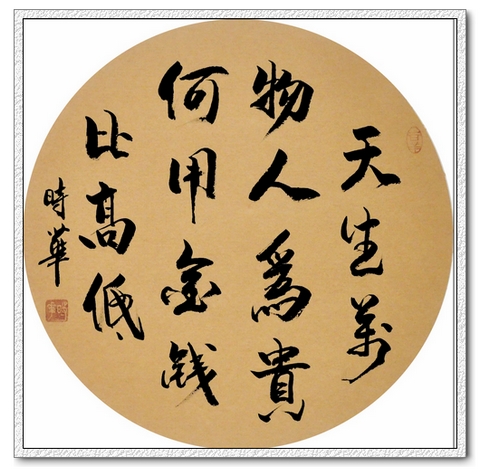 天生萬
物人為貴
何用金錢
比高低
時華